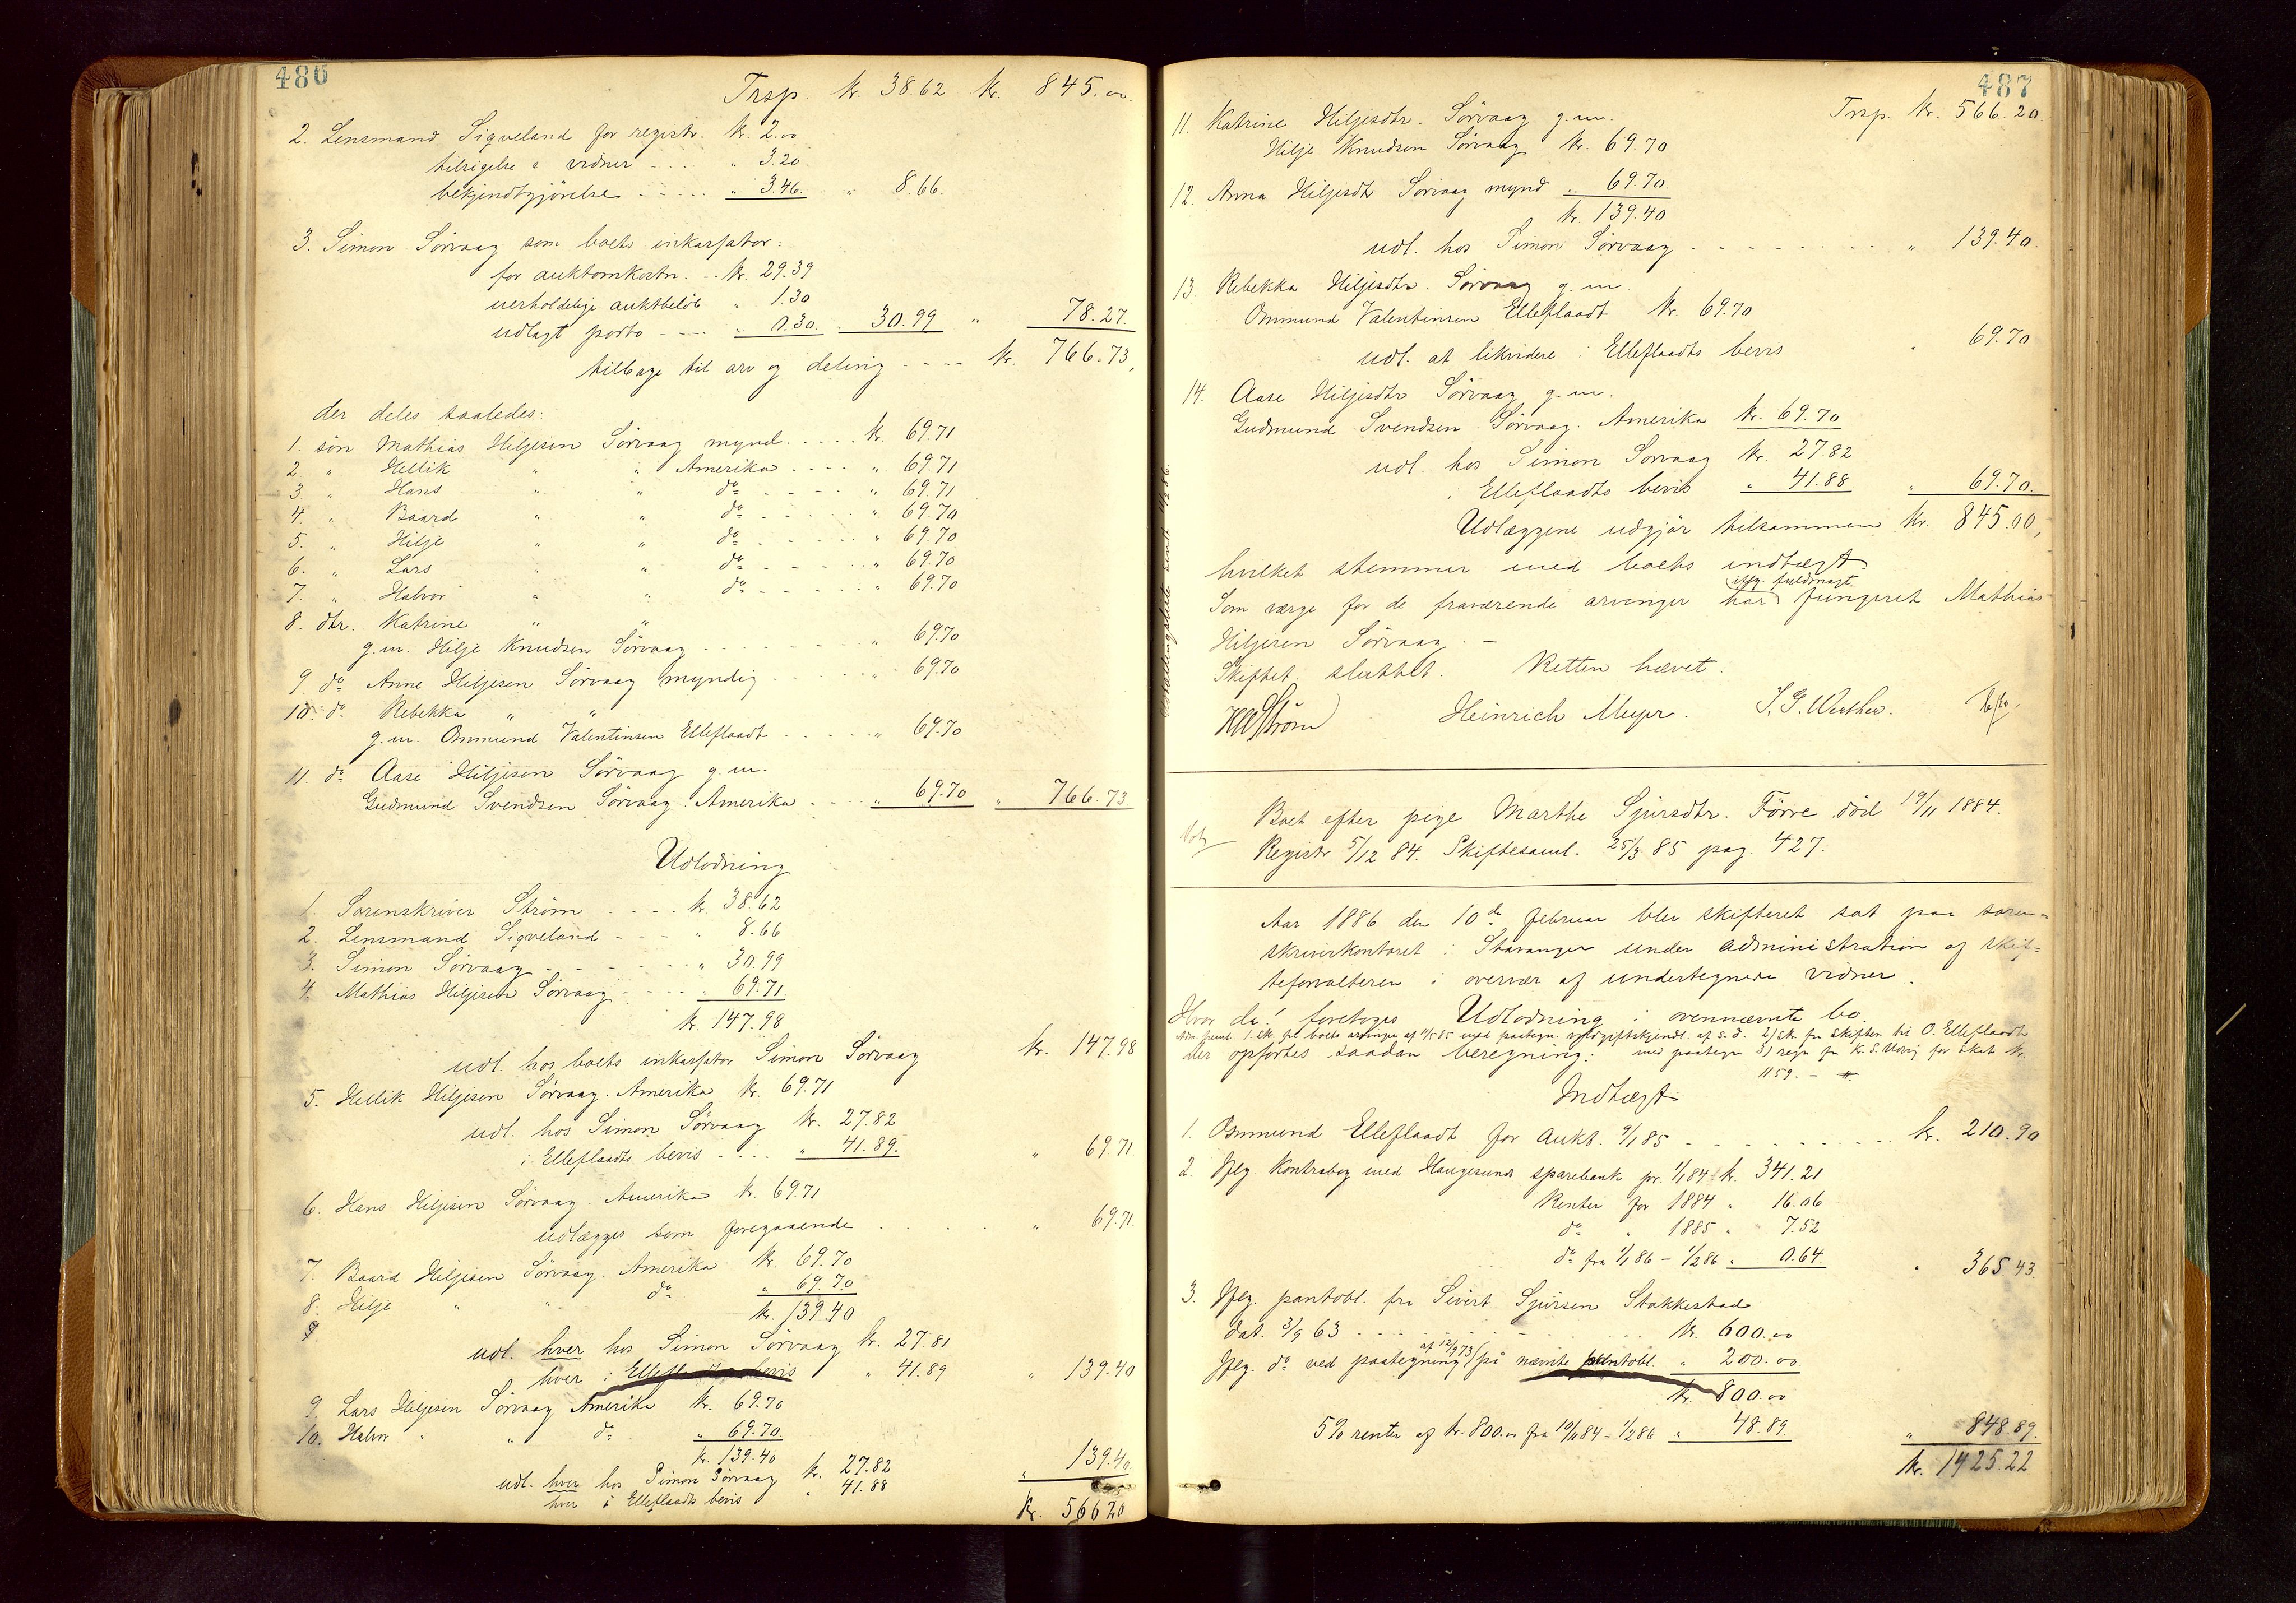 486
Trsp. kr. 38.62 kr. 845.00
2. Lensmand Sigveland for registr. kr. 2.00
tilsigelse a vidner - - - " 3.20
bekjendtgjörelse - - - - - " 3.46. " 8.66.
3. Simon Sörvaag som boets inkassator:
for auktomkostn. - - kr. 29.39
uerholdelige auktbelöb " 1.30
udlagt porto - - - - " 0.30. 30.99 " 78.27.
tilbage til arv og deling - - - - kr. 766.73,
der deles saaledes:
1. sön Mathias Hiljesen Sörvaag mynd. - - - - kr. 69.71
2. " Hellik " " Amerika - - - - " 69.71
3. " Hans " " do - - - - " 69.71
4. " Baard " " do - - - - " 69.70
5. " Hilje " " do - - - - " 69.70
6. " Lars " " do - - - - " 69.70
7. " Halvor " " do - - - - " 69.70
8. dtr. Katrine " "
g.m. Hilje Knudsen Sörvaag - - - - - - " 69.70
9. do Anne Hiljesen Sörvaag myndig - - - - - " 69.70
10. do Rebekka " "
g.m. Ommund Valentinsen Elleflaadt - - - - - " 69.70
11. do Aase Hiljesen Sörvaag g.m.
Gudmund Svendsen Sörvaag. Amerika - - - " 69.70 " 766.73
Udlodning
1. Sorenskriver Ström - - - - kr. 38.62
2. Lensmand Sigveland - - - " 8.66
3. Simon Sörvaag - - - - - - " 30.99
4. Mathias Hiljesen Sörvaag - - - - " 69.71.
kr. 147.98
udl. hos boets inkassator Simon Sörvaag kr. 147.98
5. Hellik Hiljesen Sörvaag. Amerika kr. 69.71
udl. hos Simon Sörvaag kr. 27.82
i Elleflaadts bevis - - - - " 41.89. " 69.71
6. Hans Hiljesen Sörvaag. Amerika kr. 69.71
udlægges som foregaaende - - - - " 69.71.
7. Baard Hiljesen Sörvaag. Amerika kr. 69.70
8. Hilje " " do " 69.70
kr. 139.40
9.
udl. hver hos Simon Sörvaag kr. 27.81
hver i Elleflaadts bevis " 41.89 " 139.40
9. Lars Hiljesen Sörvaag Amerika kr. 69.70
10. Halvor " " do " 69.70
kr. 139.40
udl. hver hos Simon Sörvaag kr. 27.82 " 139.40.
hver i Elleflaadts bevis " 41.88
kr. 566 20
487
Trsp. kr. 566.20.
11. Katrine Hiljesdtr. Sörvaag g.m.
Hilje Knudsen Sörvaag kr. 69.70
12. Anna Hiljesdtr Sörvaag mynd " 69.70.
kr. 139.40
udl. hos Simon Sörvaag - - - - - - - - " 139.40.
13. Rebekka Hiljesdtr. Sörvaag g.m.
Ommund Valentinsen Elleflaadt kr. 69.70
udl. at likvidere i Elleflaadts bevis " 69.70
14. Aase Hiljesdtr Sörvaag g.m.
Gudmund Svendsen Sörvaag. Amerika kr. 69.70
udl. hos Simon Sörvaag kr. 27.82
i Elleflaadts bevis " 41.88 " 69.70.
Udlæggene udgjör tilsammen kr. 845.00,
hvilket stemmer med boets indtægt.
iflg. fuldmagt
Som værge for de fraværende arvinger har fungeret Mathias
Hiljesen Sörvaag. -
Skiftet sluttet. Retten hævet.
Ström Heinrich Meyer.
Boet efter pige Marthe Sjursdtr. Förre död 19/11 1884.
Registr 5/12 84. Skiftesaml. 25/3 85 pag. 427.
Aar 1886 den 10de februar blev skifteret sat paa soren-
skriverkontoret i Stavanger under administration af skif-
teforvalteren i overvær af undertegnede vidner.
Hvor da! foretoges Udlodning i ovennævnte bo.
der opförtes saadan beregning:
1159. -
Indtægt
1. Ommund Elleflaadt for aukt. 9/1 85 - - - - - - - - - kr. 210.90
2. Iflg Kontrabog med Haugesunds sparebank pr. 1/1 84 kr. 341.21
Renter for 1884 " 16.06
do " 1885 " 7.52
do fra 1/1 86 - 1/2 86 " 0.64. " 365.43.
3. Iflg. pantobl. fra Sivert Sjursen Stakkestad
dat. 3/9 63 - - - - - - - kr. 600.00
af 12/9 73
Iflg. do ved paategning på nævnte pantobl. " 200.00.
kr. 800.00
5% renter af kr. 800.00 fra 19/11 84 - 1/2 86 " 48.89 " 848.89.
kr. 1425.22